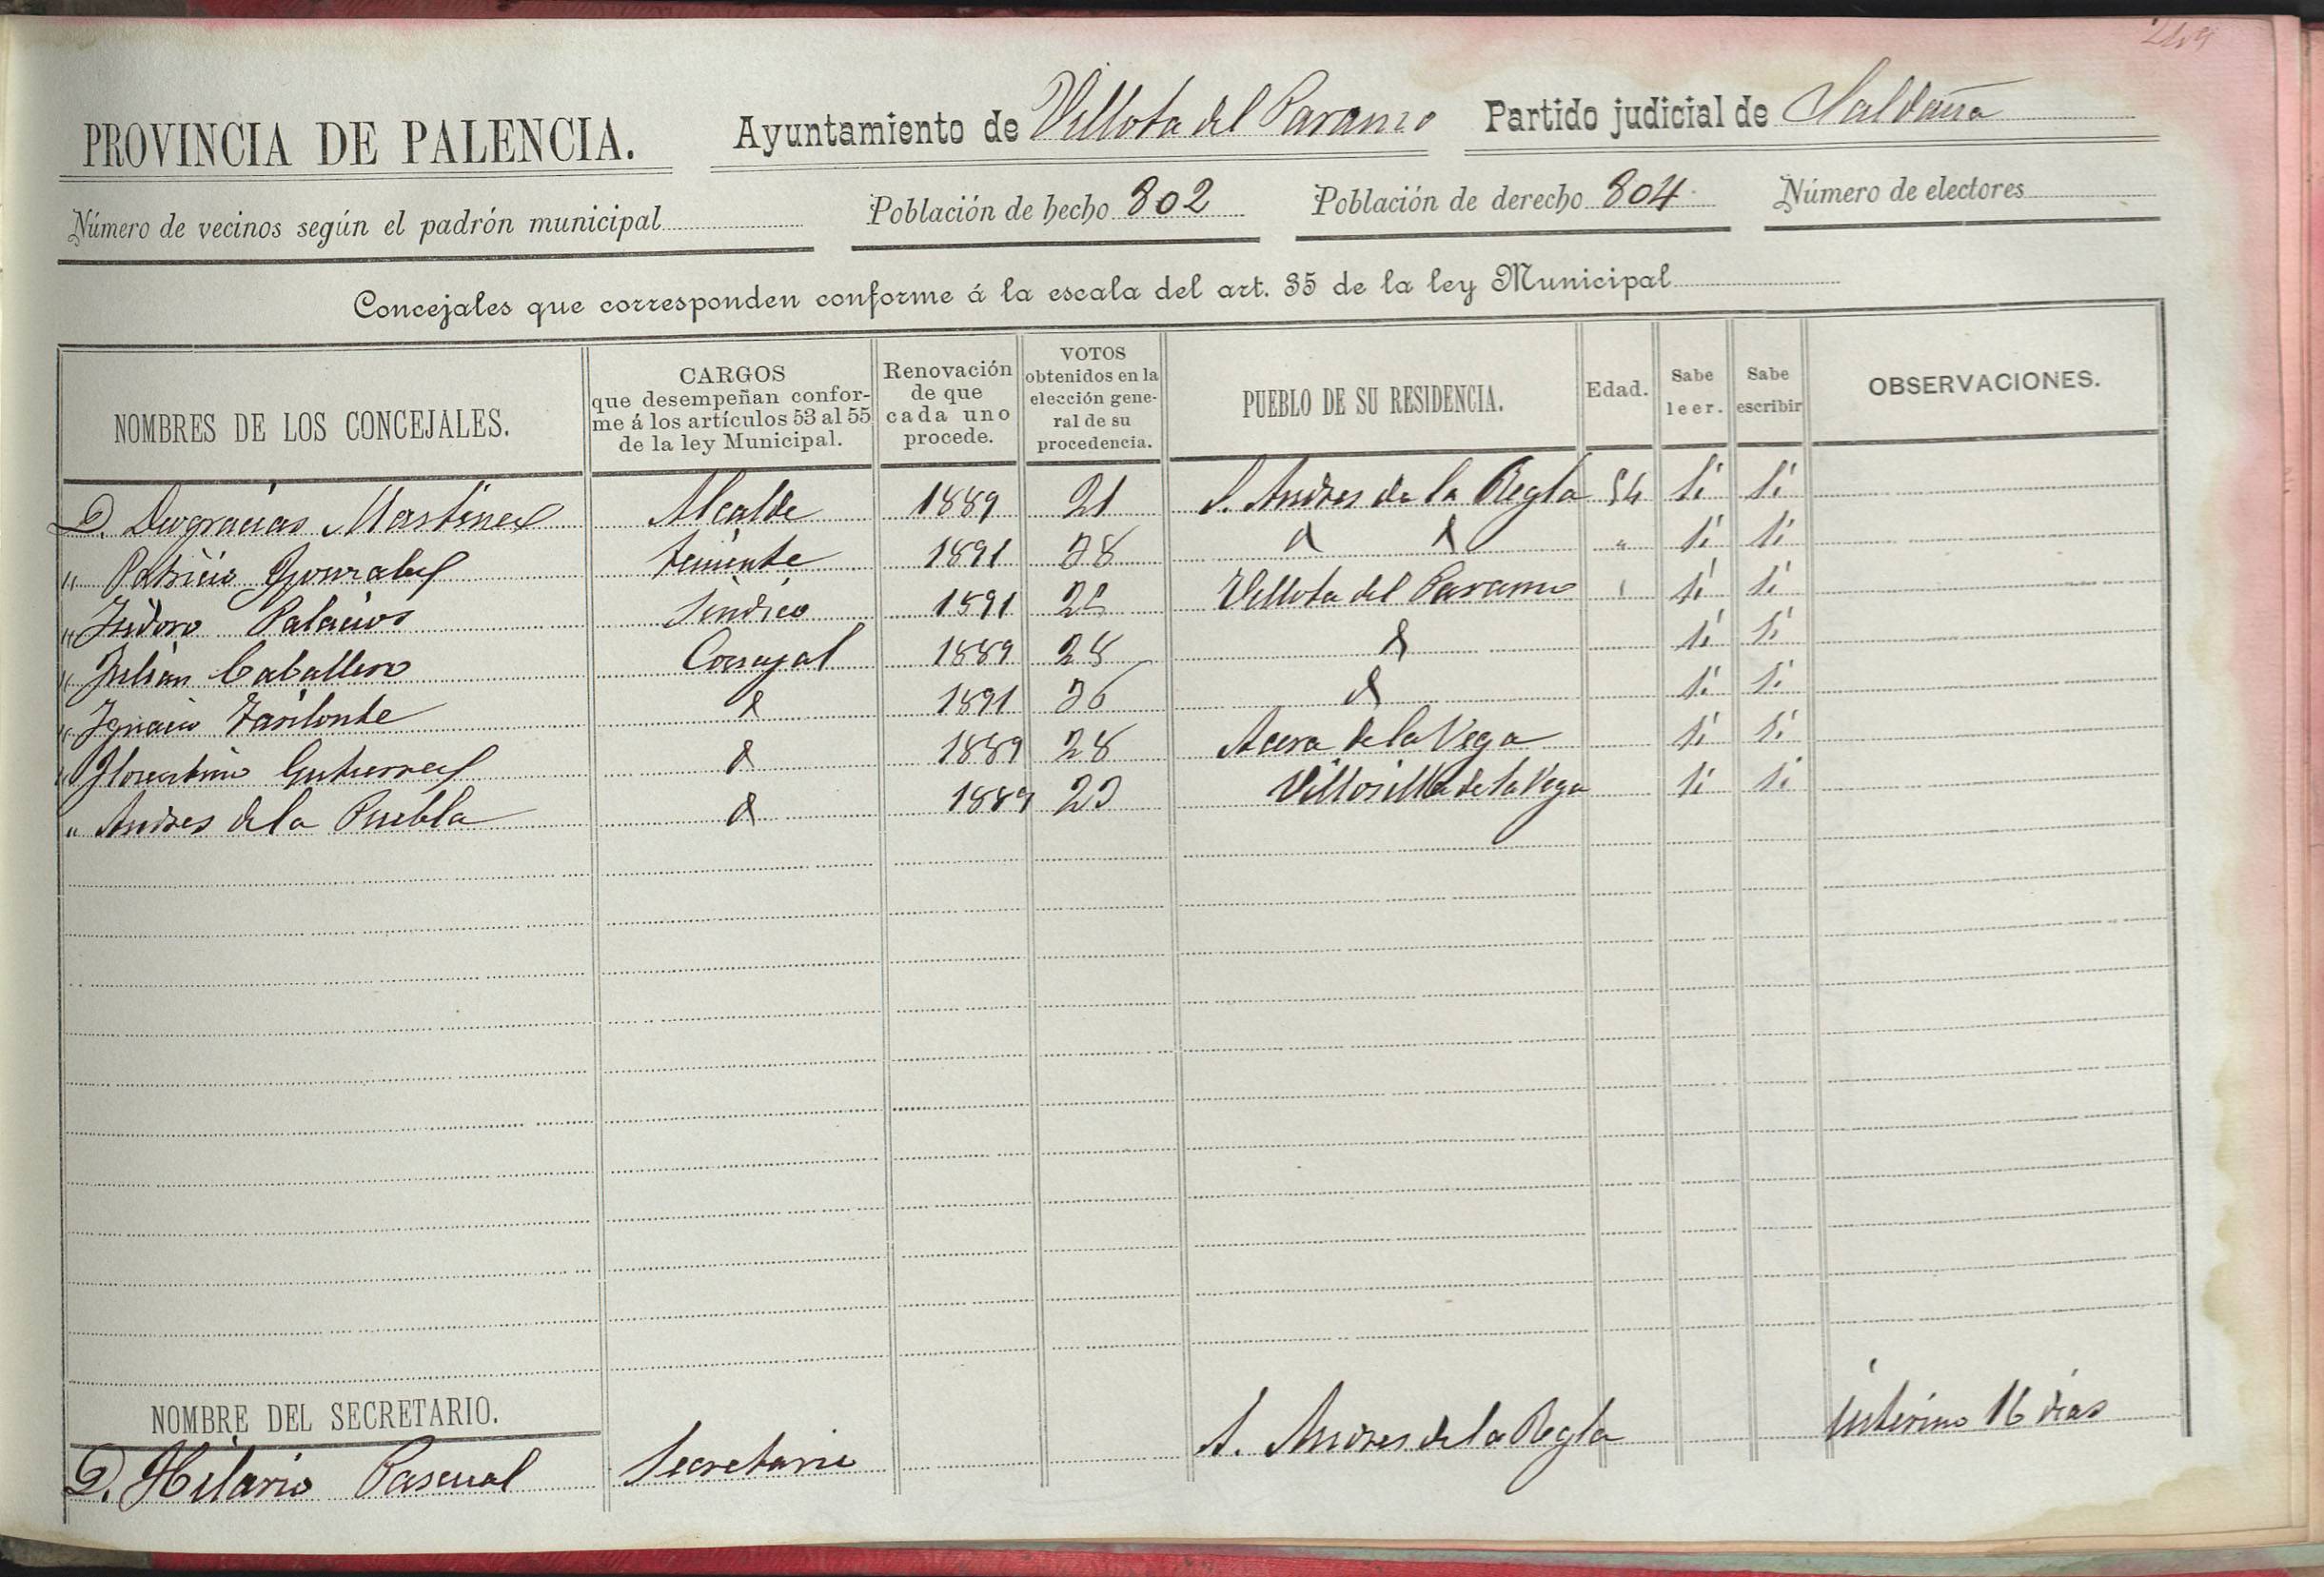 PROVINCIA DE PALENCIA. Ayuntamiento de Villota del Paramo Partido judicial de Saldaña
Número de vecinos según el padrón municipal Población de hecho 802 Población de derecho 804 Número de electores
Concejales que corresponden conforme á la escala del art. 35 de la ley Municipal
NOMBRES DE LOS CONCEJALES. CARGOS que desempeñan confor- me á los artículos 53 al 55 de la ley Municipal. Renovación de que cada uno procede. VOTOS obtenidos en la elección gene- ral de su procedencia. PUEBLO DE SU RESIDENCIA. Edad. Sabe leer. Sabe escribir OBSERVACIONES.
D. Deogracias Martinez Alcalde 1889 21 S. Andres de la Regla 54 Si Si
" Patricio Gonzalez teniente 1891 28 " Si Si
" Isidoro Palacios Sindico 1891 Villota del Paramo Si Si
" Julian Caballero Concejal 1889 28 Si Si
" Ignacio 1891 26 Si Si
" Florentino Gutierrez 1889 28 Acera de la Vega Si Si
" Andres de la Puebla 1889 Villosilla de la Vega Si Si
NOMBRE DEL SECRETARIO.
D. Hilario Pascual Secretario S. Andres de la Regla interino 16 dias